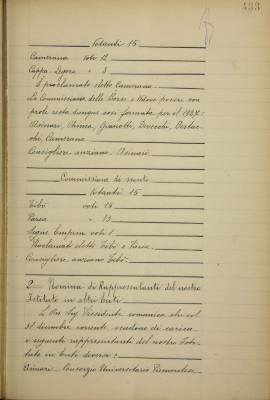 433
Votanti 15
Camerana voti 12
Cappa Legora " 3
È proclamato eletto Camerana.
La Commissione delle Borse a vedove povere con
prole resta dunque così formata per il 1927:
Chimica, Gianotti, Bertac-
chi, Camerana
Consigliere anziano: Asinari
Commissione di sconto
Votanti 15
Tibò voti 15
Parea " 13
Segue voti 1
Proclamati eletti Tibò e Parea.
Consigliere anziano Tibò.
2 - Nomina di Rappresentanti del nostro
Istituto in altri Enti
L'On. Sig. Presidente comunica che col
31 dicembre corrente scadono di carica
i seguenti rappresentanti del nostro Isti-
tuto in Enti diversi:
Asinari - Consorzio Universitario Piemontese